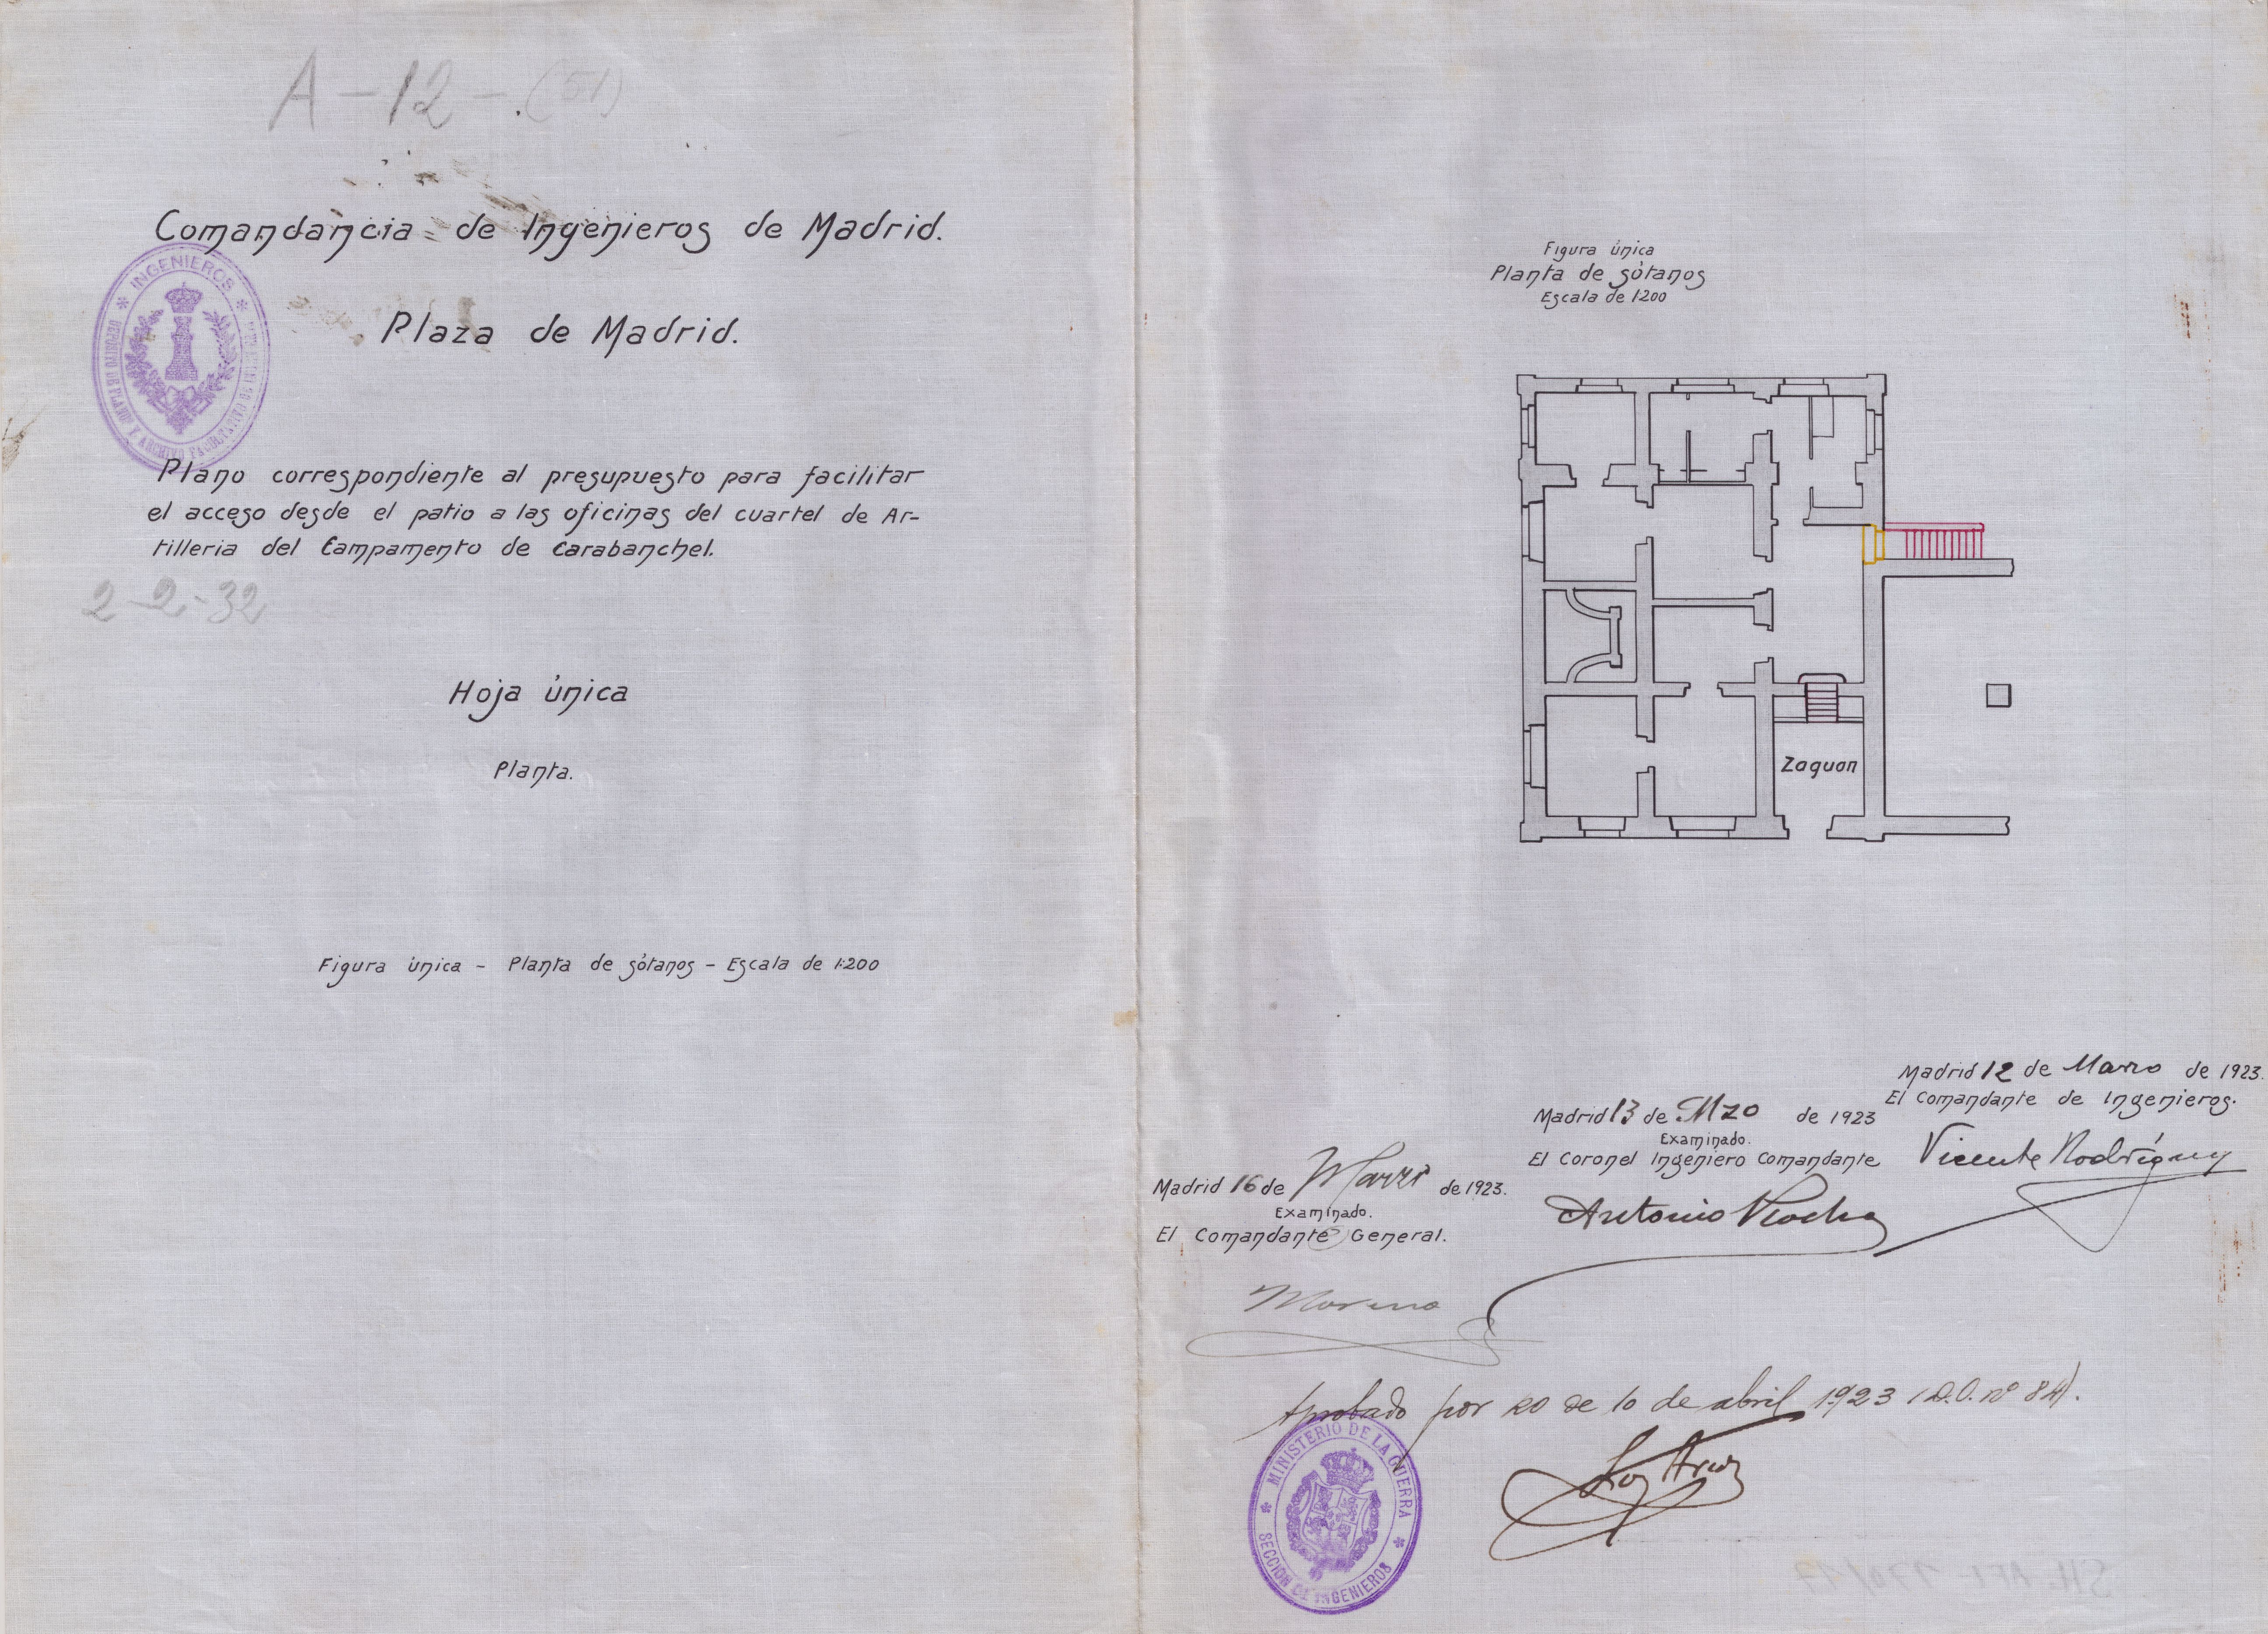 A-12-.(51)
Comandancia de Ingenieros de Madrid.
INGENIEROS
DEPOSITO DE PLANOS Y ARCHIVO FACULTATIVO
Plaza de Madrid.
Plano correspondiente al presupuesto para facilitar
el acceso desde el patio a las oficinas del cuartel de Ar-
tilleria del Campamento de Carabanchel.
2-2-32
Hoja única
Planta.
Figura única - Planta de sótanos - Escala de 1:200
Figura única
Planta de sótanos
Escala de 1:200
Zaguan
Madrid 12 de Marzo de 1923.
El Comandante de Ingenieros.
Vicente Rodríguez
Madrid 13 de Mzo de 1923
Examinado.
El Coronel Ingeniero Comandante
Antonio Rocha
Madrid 16 de Marzo de 1923.
Examinado.
El Comandante General.
Moreno
Aprobado por RO de 10 de abril 1923 (D.O. nº 84).
Los Arcos
MINISTERIO DE LA GUERRA
SECCION DE INGENIEROS